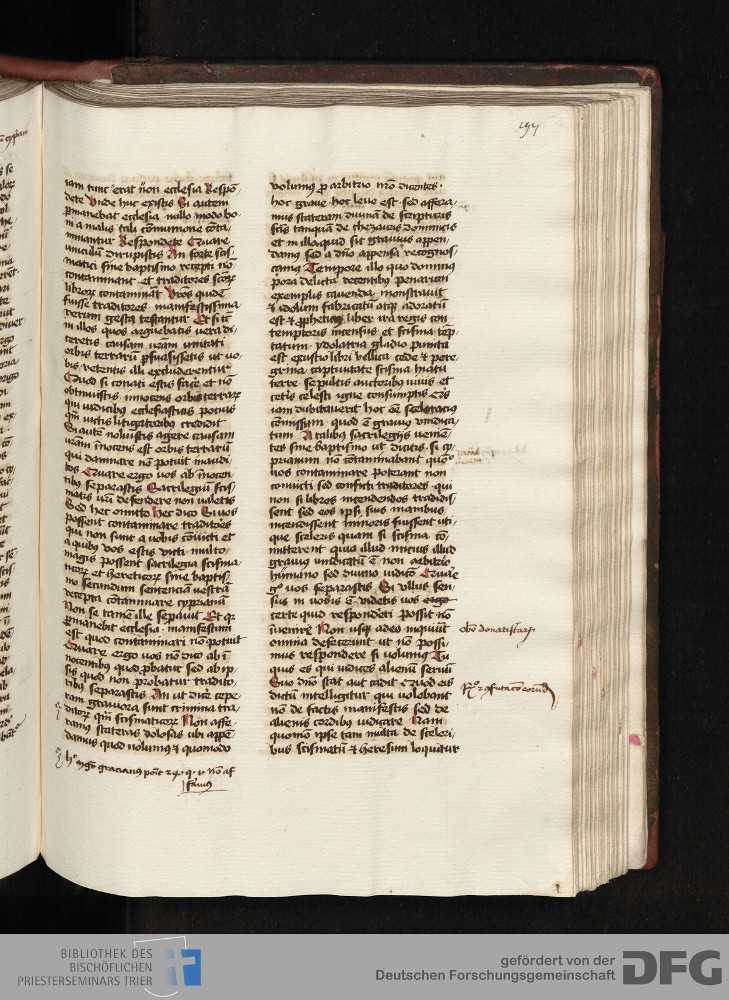 iam tunc erat non ecclesia Respon
dete Unde huc existis Si autem
permanebat ecclesia nullo modo bo
ni a malis tali communione conta
minantur Respondete Quare
vinculum dirupistis An forte scis
matici sine baptismo recepti non
contaminant et traditores scorum
librorum contaminant Vros quidem
fuisse traditores manifestissima
rerum gesta testantur Et si in
in illos quos arguebatis vera di
ceretis causam vestram unitati
orbis terrarum persuasissetis ut vo
bis retentis illi excluderentur
Quod si conati estis facere et non
obtinuistis innocens orbis terrarum
qui iudicibus ecclesiasticis pocius
quam victis litigatoribus credidit
Si autem noluistis agere causam
vestram innocens est orbis terrarum
qui damnare non potuit inaudi
tos Quare ergo vos ab innocen
tibus separastis Sacrilegium scis
matis vestri defendere non valetis
Sed hec omitto hec dico Si vos
possent contaminare traditores
qui non sunt a vobis convicti et
a quibus vos estis victi multo
magis possent sacrilegia scisma
ticorum et hereticorum sine baptis
mo secundum sentenciam vestram
recepta contaminare cyprianum
Non se tamen ille separavit Et quia
permanebat ecclesia manifestum
est quod contaminari non potuit
Quare ergo vos non dico ab in
nocentibus quod probatur sed ab ip
sis quod non probatur tradito
ribus separastis An ut dicere cepe
ram graviora sunt crimina tra
ditorum quam scismaticorum Non affe
ramus stateras dolosas ubi appen
damus quod volumus et quomodo
volumus pro arbitrio nostro dicentes
hoc grave hoc leve est sed affera
mus stateram divinam de scripturis
sanctis tanquam de thezauris dominicis
et in illa quid sit gravius appen
damus sed a domino appensa recognos
camus Tempore illo quo dominus
pora delicta recentibus penarum
exemplis cavenda monstravit
et idolum fabricatum atque adoratum
est et propheticus liber ira regis con
temptoris incensus et scisma temp
tatum ydolatria gladio punita
est exustio libri bellica cede et pere
grina captivitate scisma hiatu
terre sepultis auctoribus vivis et
ceteris celesti igne consumptis Quis
iam dubitaverit hoc esse sceleratius
commissum quod est gravius vindica
tum A talibus sacrilegiis venien
tes sine baptismo ut dicitis si cy
prianum non contaminabant quomodo
vos contaminare poterant non
convicti sed conficti traditores qui
non si libros incendendos tradidis
sent sed eos ipsi suis manibus
incendissent minoris fuissent uti
que sceleris quam si scisma com
mitterent quia illud micius illud
gravius vindicatum est non arbitrio
humano sed divino iudicio Quare
ergo vos separastis Si ullus sen
sus in vobis est videtis vos ergo
certe quid responderi possit non
invenire Non usque adeo inquiunt
omnia defecerunt ut non possi
mus respondere si volumus Tu
quis es qui iudices alienum servum
Suo domino stat aut cadit Quod eis
dictum intelligitur qui volebant
non de factis manifestis sed de
alienis cordibus iudicare Nam
quomodo ipse tam multa de sceleri
bus scismatum et heresum loquitur
obiectio donatistarum
BIBLIOTHEK DES
BISCHÖFLICHEN
PRIESTERSEMINARS TRIER
gefördert von der
Deutschen Forschungsgemeinschaft
DFG